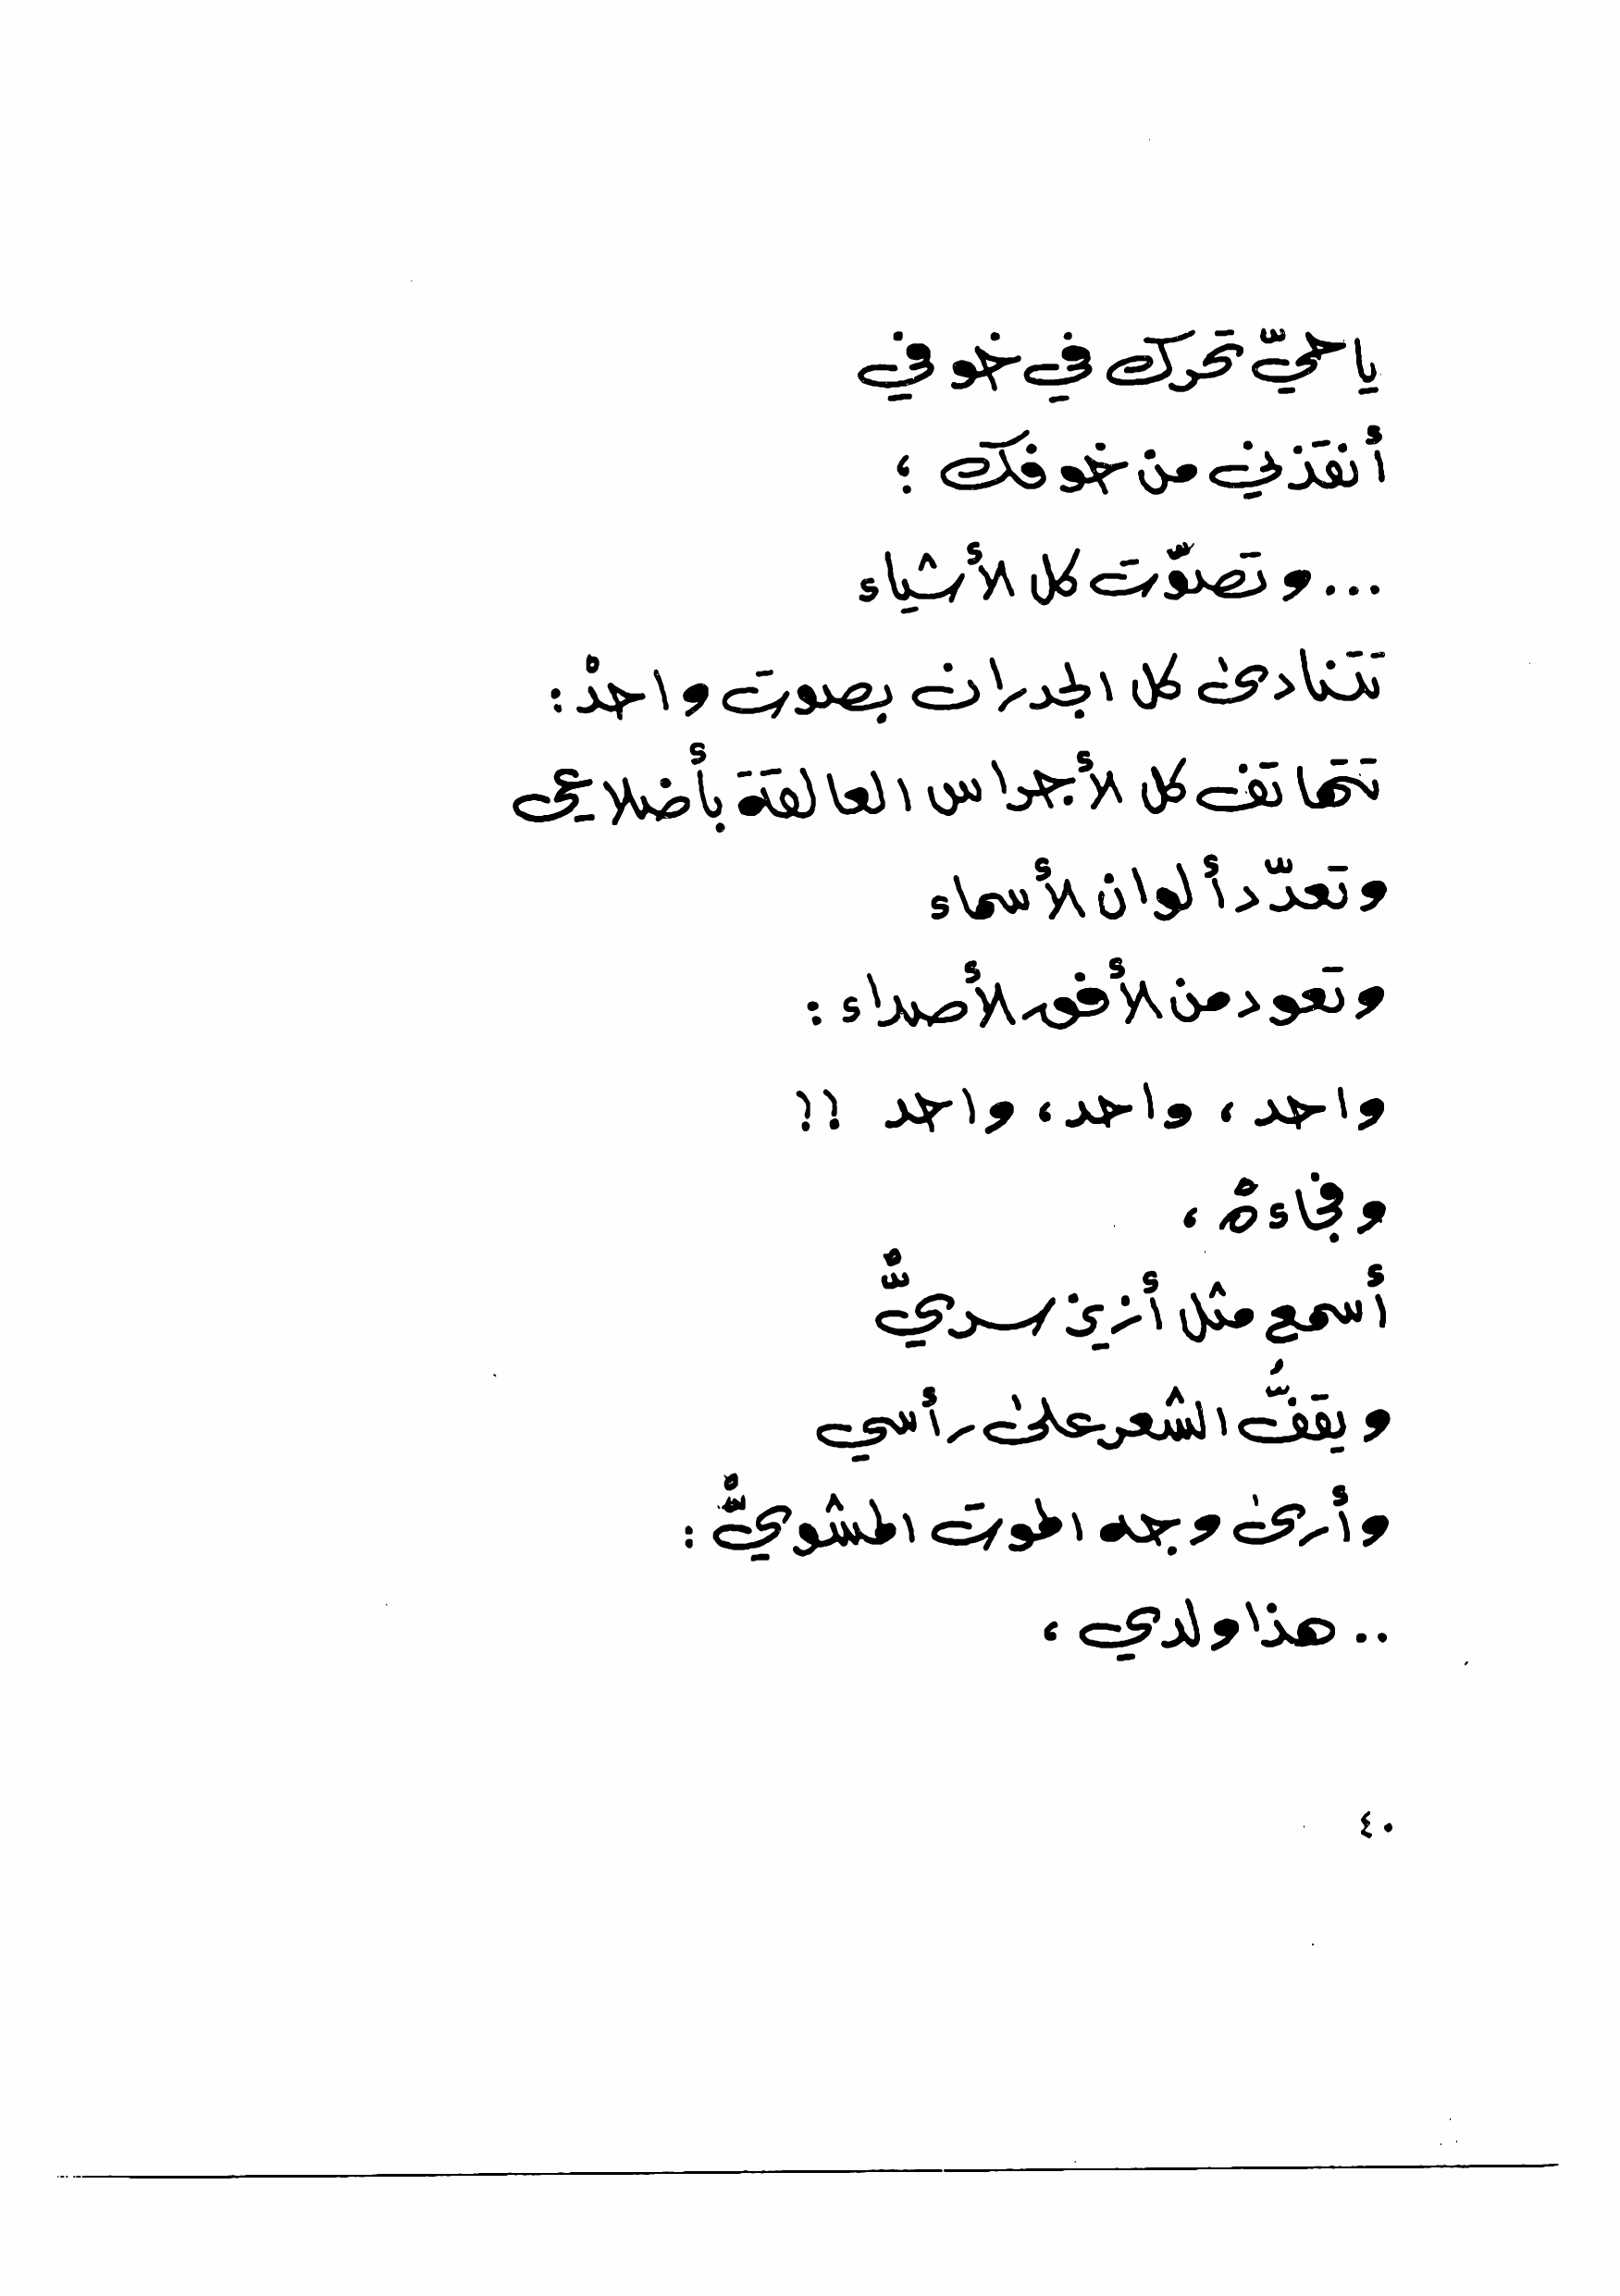 يا حيّ تحرك في خوفي
أنقذني من خوفك ؛
... وتصوّت كل الأشياء
تتنادىٰ كل الجدران بصوت واحدْ :
تتهاتف كل الأجراس العالقة بأضلاعي
وتعدّد ألوان الأسماء
وتعود من الأفق الأصداء :
واحد ، واحد ، واحد !!
وفجاءةْ ،
أسمع مثل أزيز سريّْ
ويقفُّ الشعر علىٰ رأسي
وأرىٰ وجه الموت المشويّْ :
.. هذا ولدي ،
٤٠